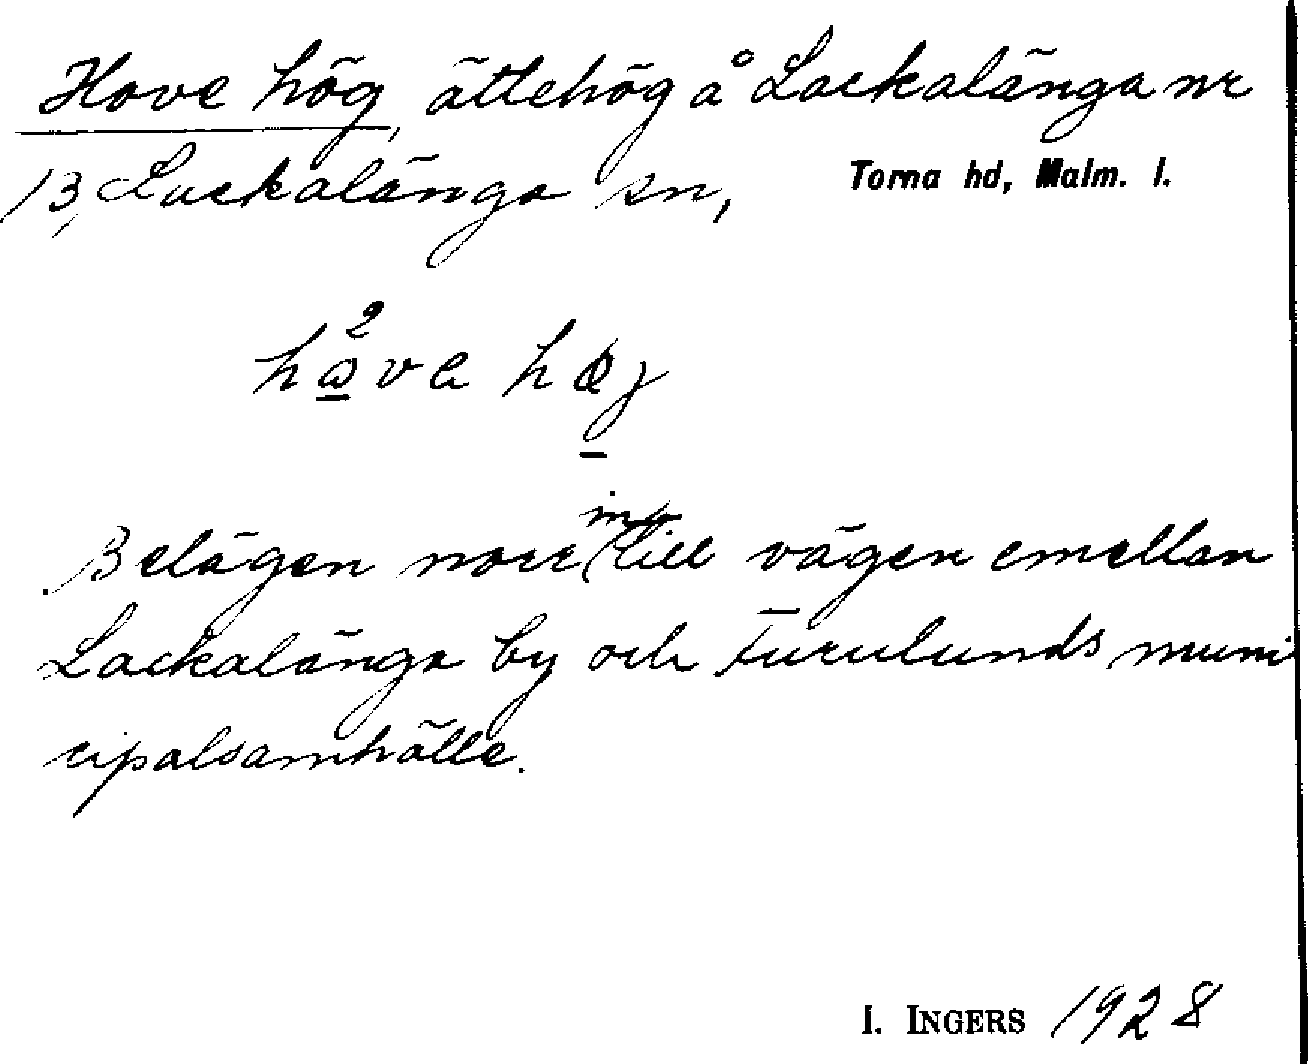 Hove hög, ättehög å Lackalänga nr
13, Lackalänga sn, Torna hd, Malm. l.
Belägen norr (intill vägen emellan
Lackalänga by och Furulunds muni
cipalsamhälle.
I. INGERS 1928